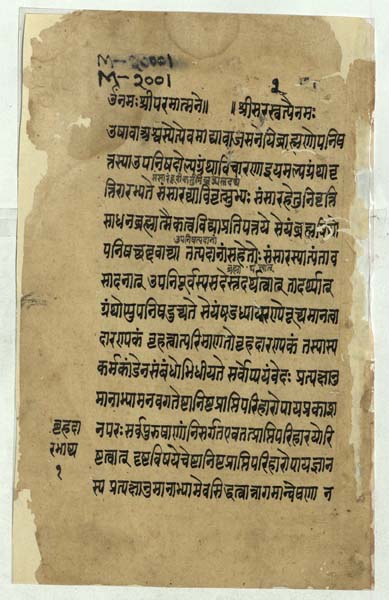 M-20001
M-2001
१
ॐनमःश्रीपरमात्मने॥ ॥श्रीसरस्वत्यैनमः
उषावाअश्वस्येत्येवमाद्यावाजसनेयिब्राह्मणोपनिष
त्तस्याउपनिषदोल्पग्रंथाविचारणाइयमल्पग्रंथावृ
त्तिरारभ्यते संसारव्याविवृत्सुभ्यः संसारहेतुनिवृत्ति
साधनब्रह्मात्मैकत्वविद्याप्रतिपत्तये सेयंब्रह्मविद्यो
पनिषच्छब्दवाच्या तत्पराणांसहेतोः संसारस्यात्यंताव
सादनात् उपनिपूर्वस्यसदेस्तदर्थत्वात् तादर्थ्यात्
ग्रंथोप्युपनिषदुच्यते सेयंषडध्याय्यरण्येनूच्यमानत्वा
दारण्यकं बृहत्वात्परिमाणतोबृहदारण्यकं तस्यास्य
कर्मकांडेनसंबंधोभिधीयते सर्वोप्ययंवेदः प्रत्यक्षानु
मानाभ्यामनवगतेष्टानिष्टप्राप्तिपरिहारोपायप्रकाश
नपरः सर्वपुरुषाणांनिसर्गतएवतत्प्राप्तिपरिहारयोरि
ष्टत्वात् दृष्टविषयेचेष्टानिष्टप्राप्तिपरिहारोपायज्ञान
स्य प्रत्यक्षानुमानाभ्यामेवसिद्धत्वान्नागमान्वेषणा न
बृहदा
रभाष्य
१